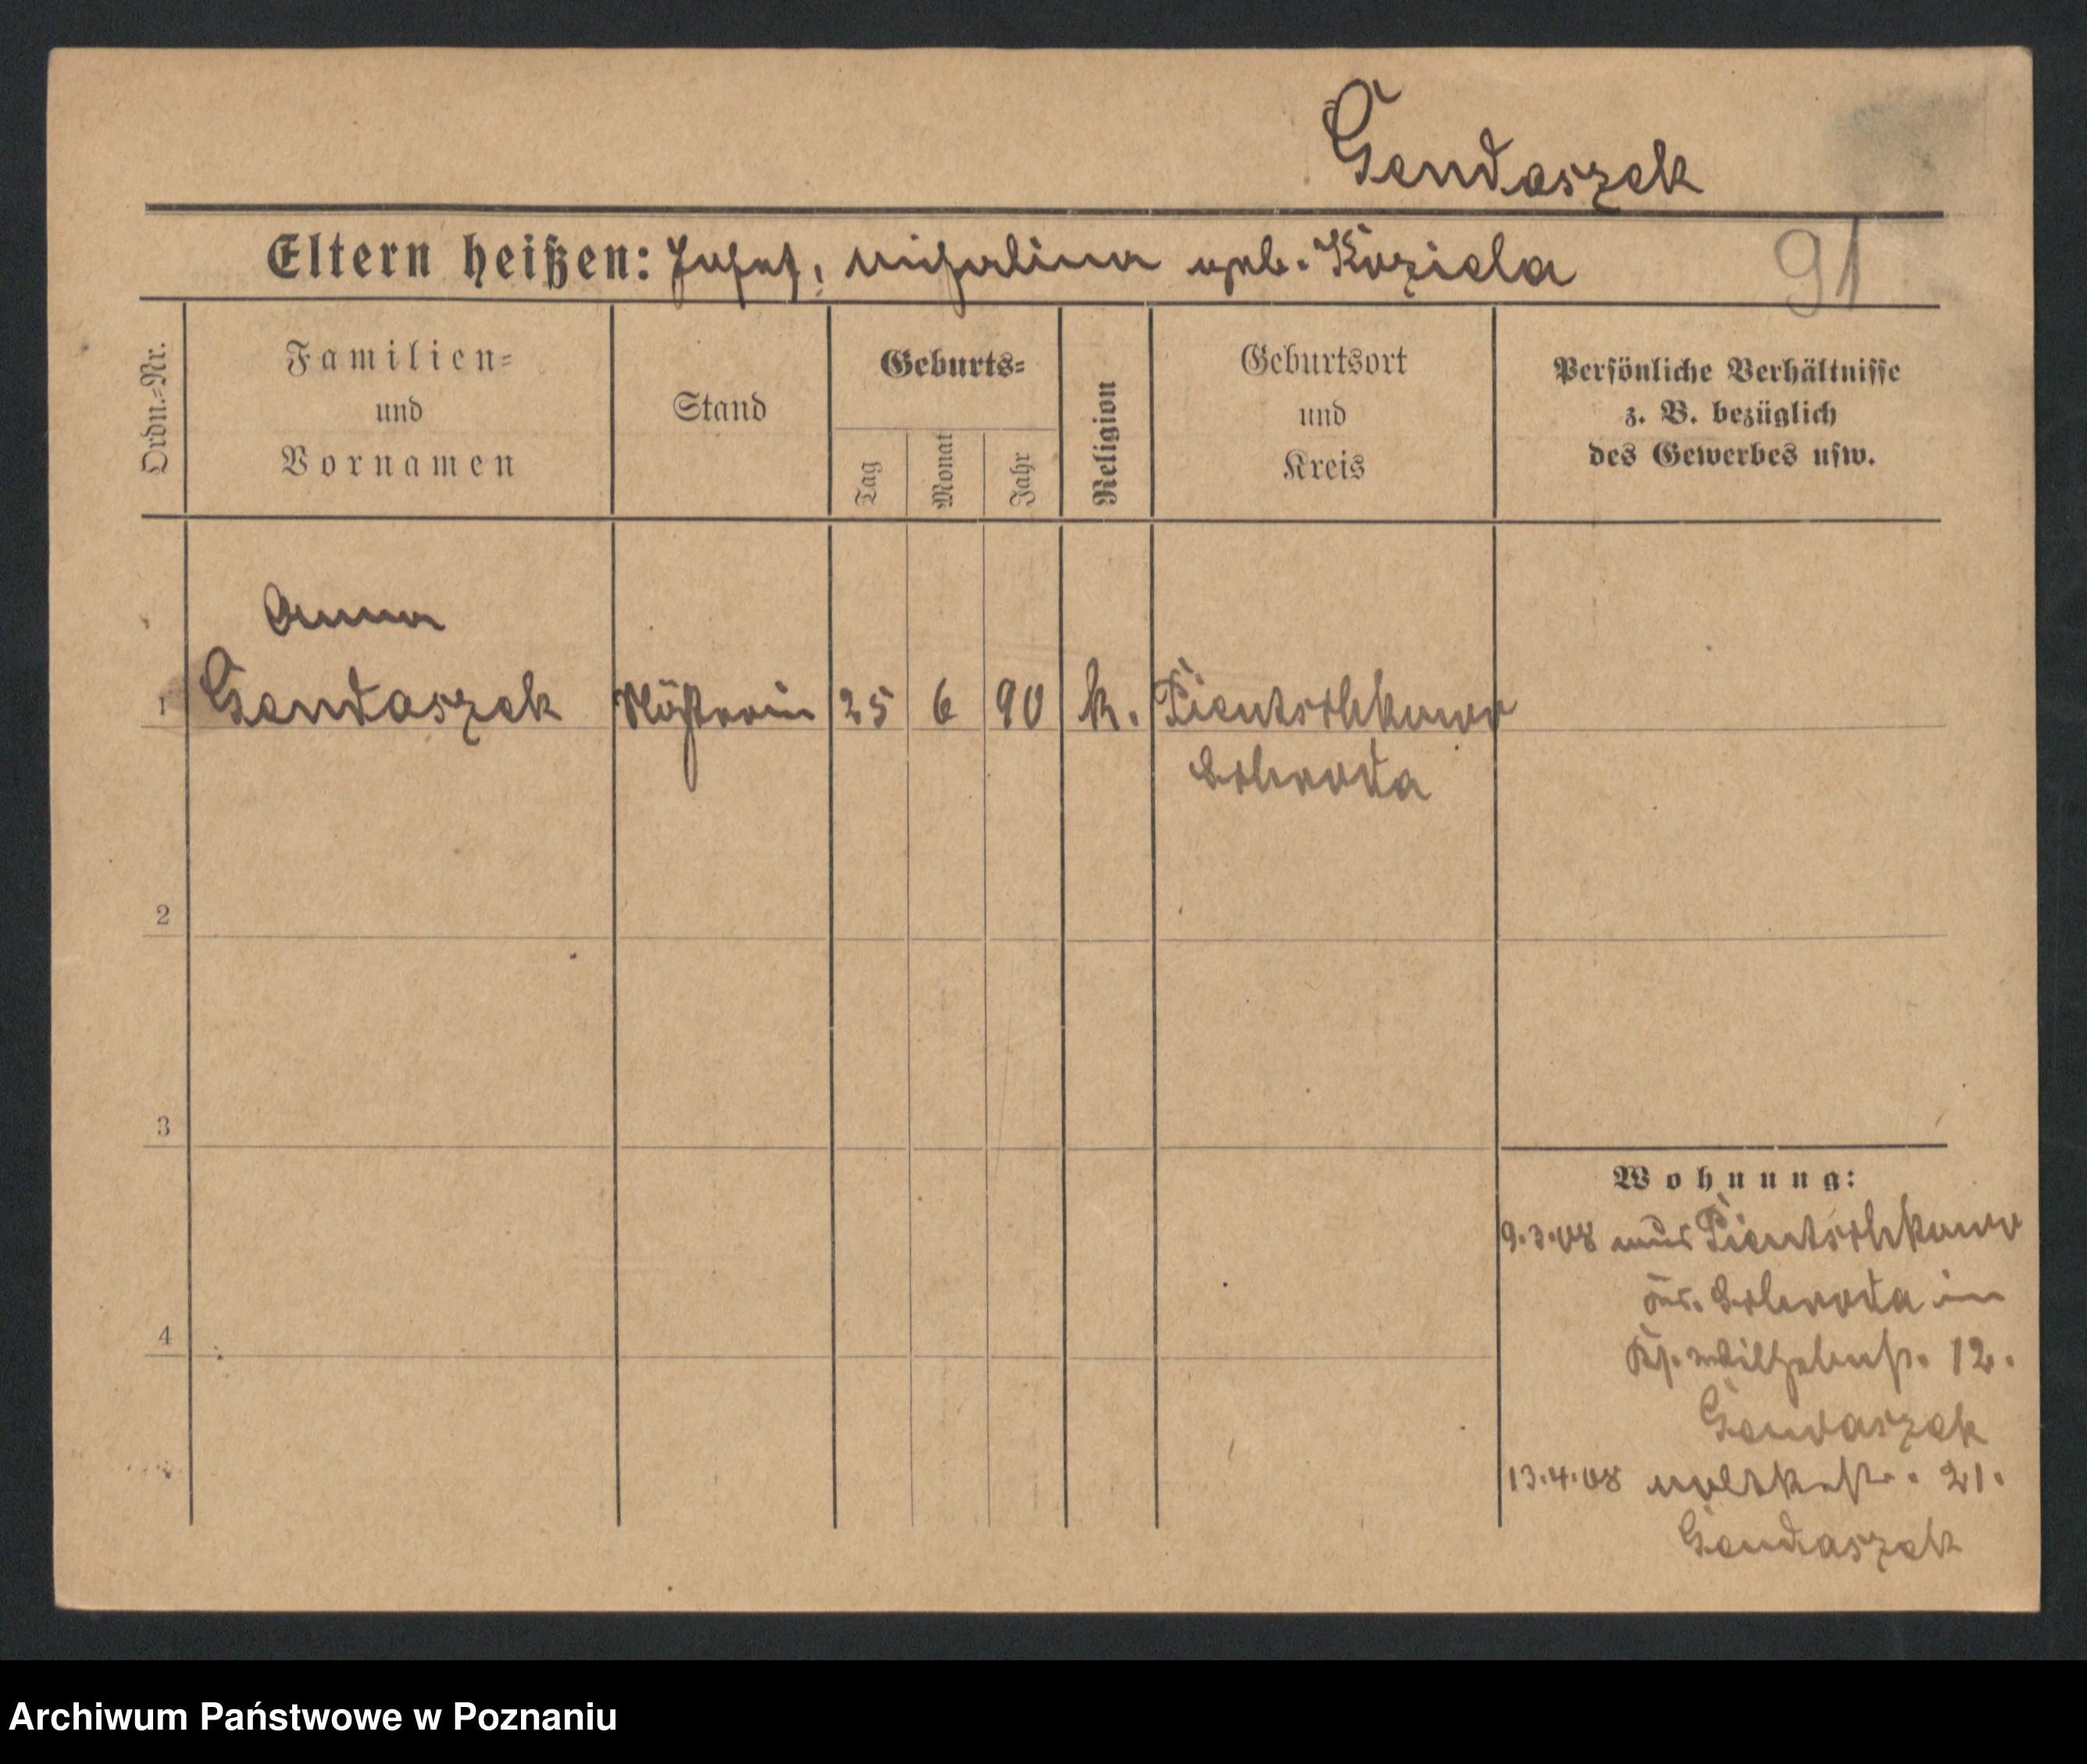 Gendaszek
Eltern heißen: Josef, Michalina geb. Koziela
91
Ordn.-Nr.
Familien-
und
Vornamen
Stand
Geburts-
Tag
Monat
Jahr
Religion
Geburtsort
und
Kreis
Persönliche Verhältnisse
z. B. bezüglich
des Gewerbes usw.
Anna
1 Gendaszek 25 6 90 k. Pientschkowo
Schroda
2
3
4
Wohnung:
9.3.08 aus Pientschkowo
Schroda in
Wilhelmstr. 12.
Gendaszek
13.4.08 Moltkestr. 21.
Gendaszek
Archiwum Państwowe w Poznaniu